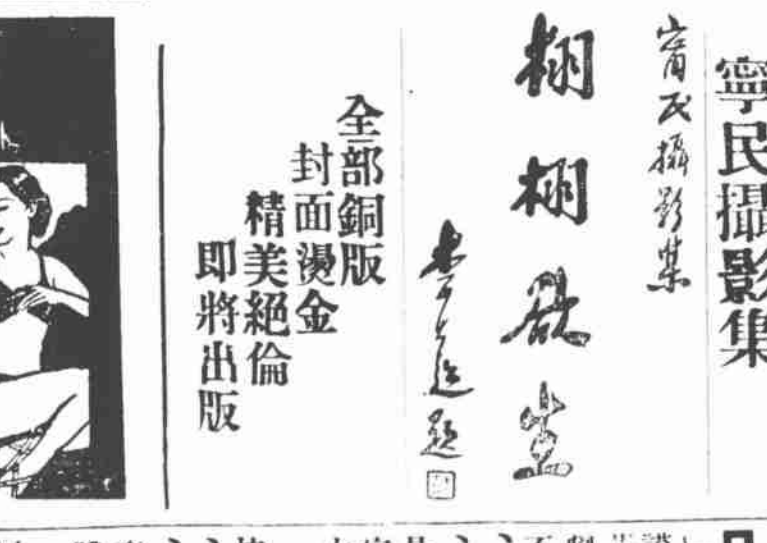 寧民攝影集
甯民攝影集
栩栩欲生
題
全部銅版
封面燙金
精美絕倫
即將出版